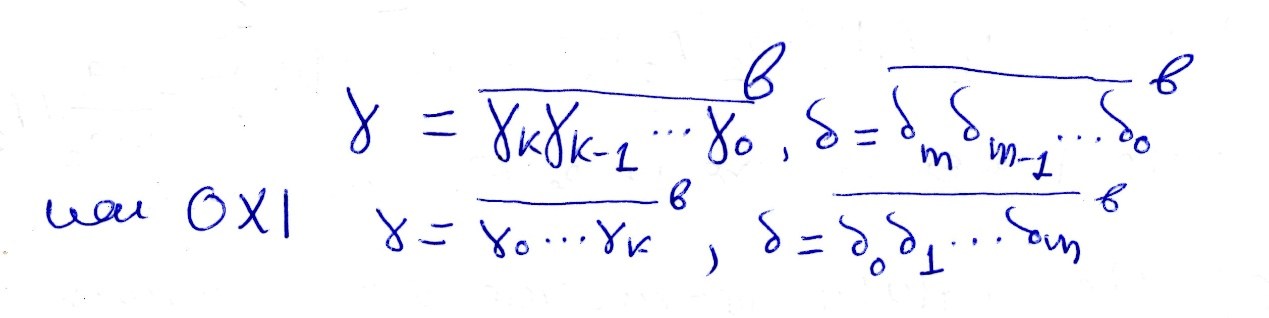 γ = \overline{γ_κ γ_{κ-1} ... γ_0}^β, δ = \overline{δ_m δ_{m-1} ... δ_0}^β
και ΟΧΙ γ = \overline{γ_0 ... γ_κ}^β, δ = \overline{δ_0 δ_1 ... δ_m}^β